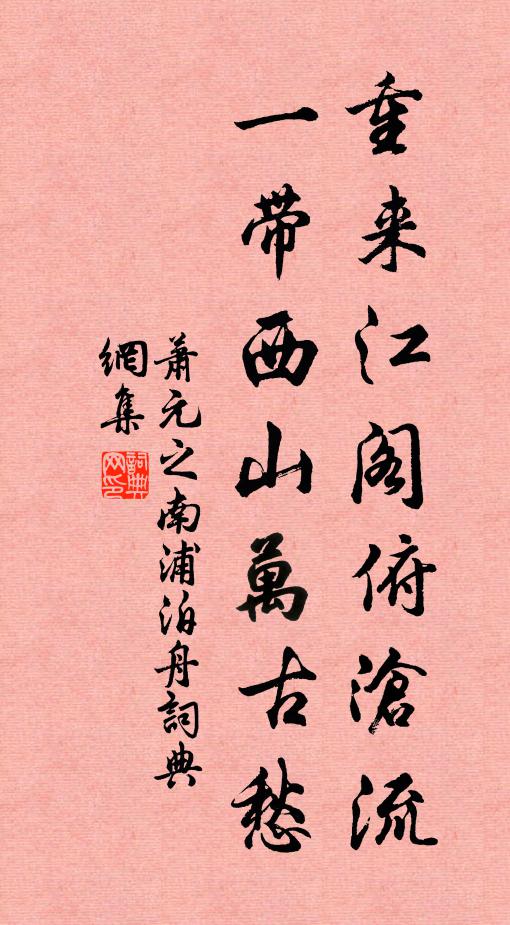 重来江阁俯滄流
一带西山萬古愁
蕭元之南浦泊舟詞典
網集
詞典
网印